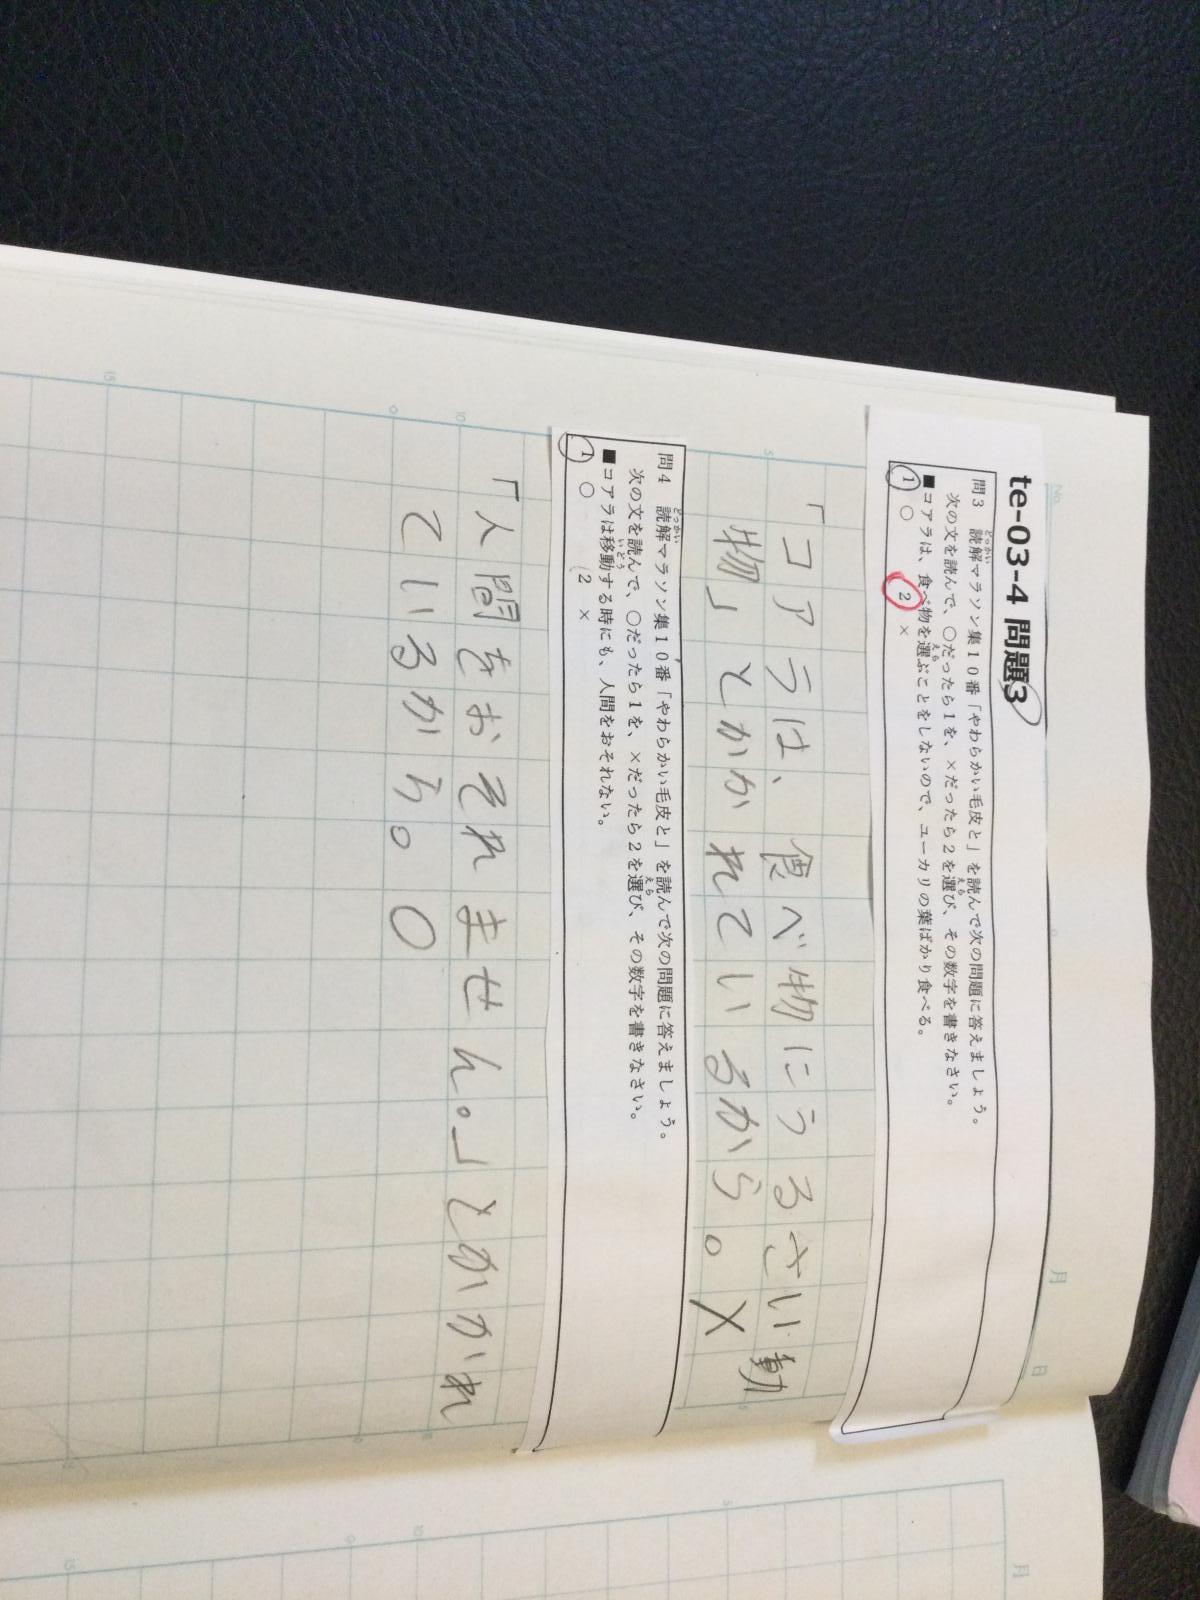 No.
月 日
te-03-4 問題3
問3 読解マラソン集10番「やわらかい毛皮と」を読んで次の問題に答えましょう。
次の文を読んで、○だったら1を、×だったら2を選び、その数字を書きなさい。
■コアラは、食べ物を選ぶことをしないので、ユーカリの葉ばかり食べる。
1 ○ 2 ×
「コアラは、食べ物にうるさい動
物」とかかれているから。×
問4 読解マラソン集10番「やわらかい毛皮と」を読んで次の問題に答えましょう。
次の文を読んで、○だったら1を、×だったら2を選び、その数字を書きなさい。
■コアラは移動する時にも、人間をおそれない。
1 ○ 2 ×
「人間をおそれません。」とかかれ
ているから。○
5
10
15
月
5
10
15